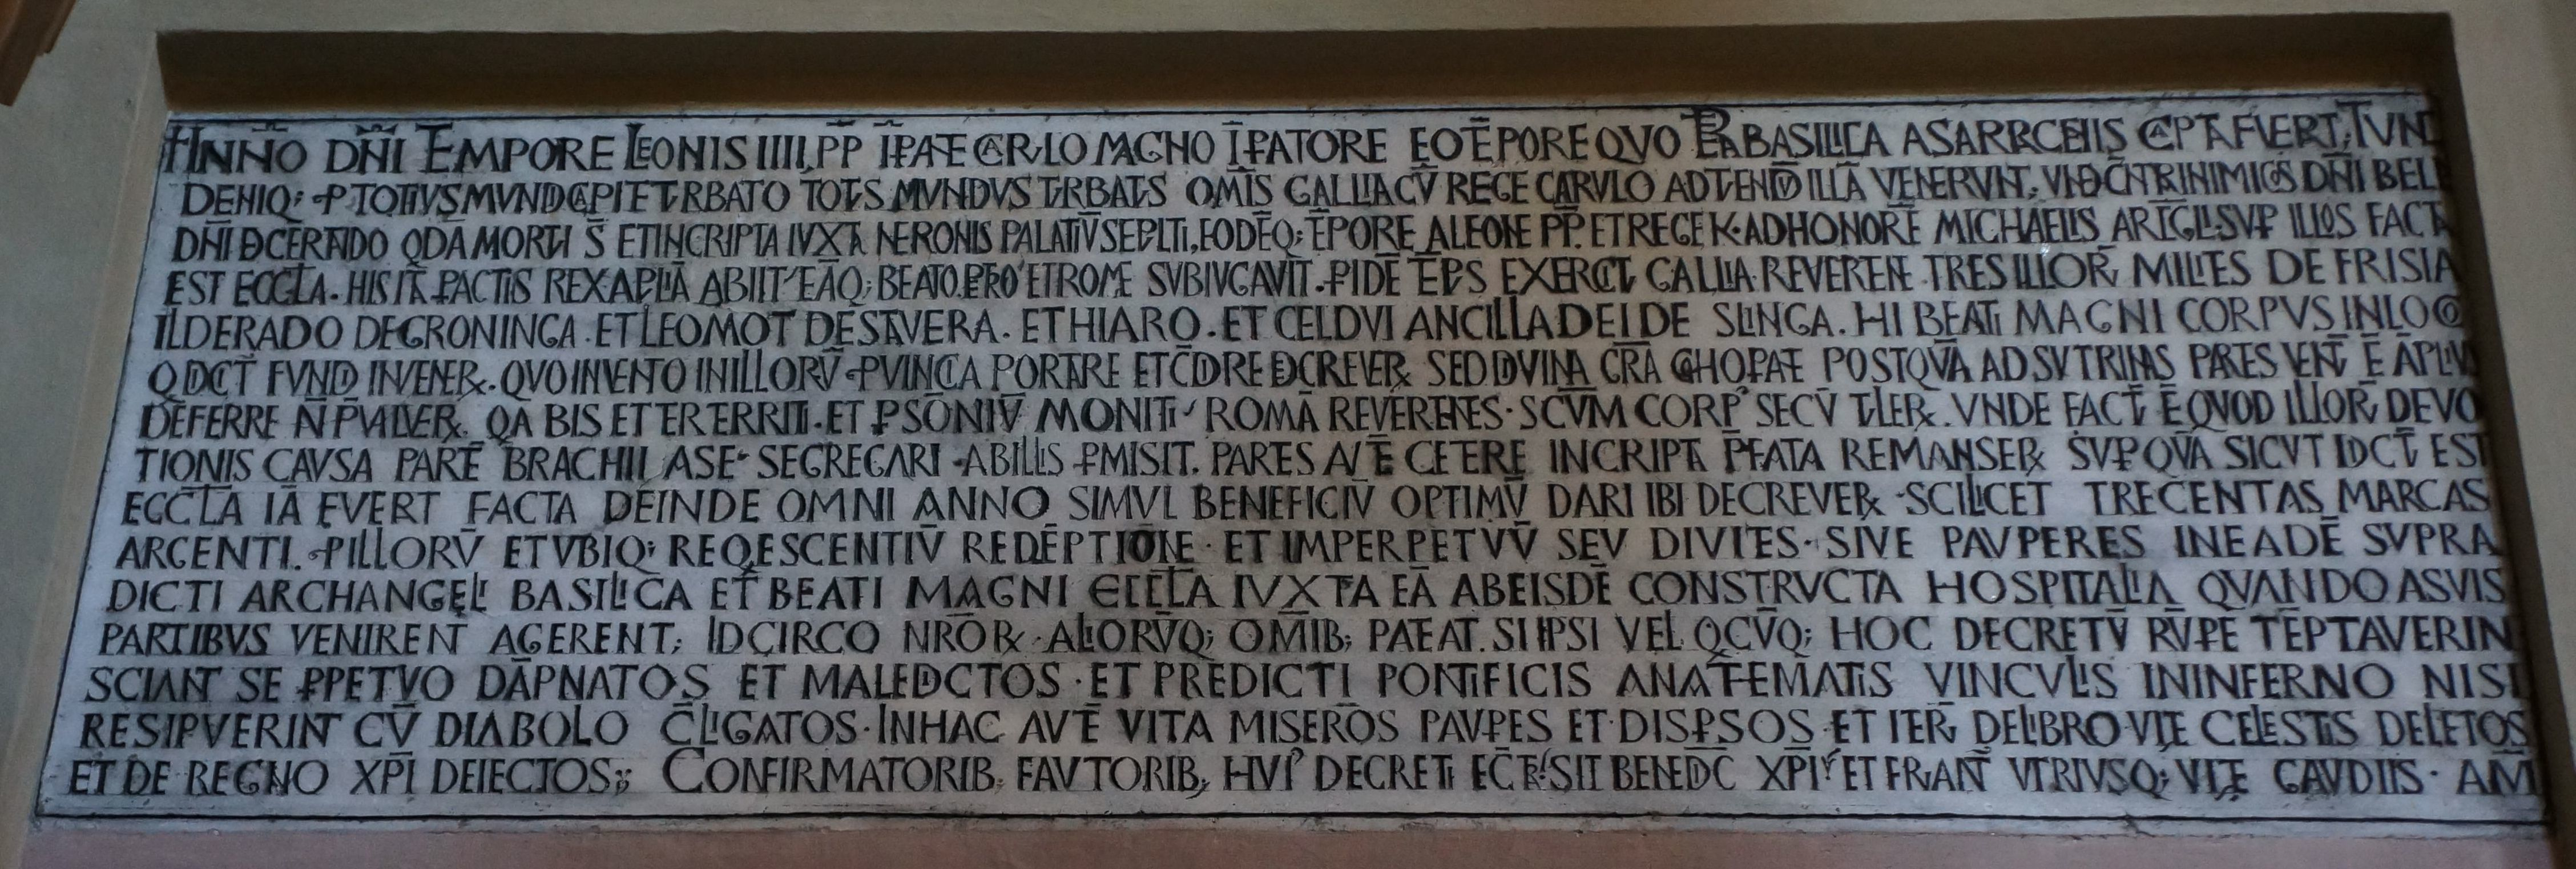 ANNO DNI TEMPORE LEONIS IIII PP IPATE CARLO MAGNO IPATORE EO TEPORE QVO BASILICA A SARRCENIS CAPTA FVERT, TVN
DENIQ; P TOTIVS MVNDI CAPITE TVRBATO TOTVS MVNDVS TVRBATVS OMIS GALLIA CV REGE CARVLO AD TVENDV ILLA VENERVNT, INIMICOS DNI BEL
DNI DCERTANDO QDA MORTVI S ET IN CRIPTA IVXTA NERONIS PALATIV SEPVLTI, EODEQ; TEPORE A LEONE PP. ET REGE K. AD HONORE MICHAELIS SVP ILLOS FACTA
EST ECCLA. HIS ITA PACTIS REX APLIA ABIIT EAQ; BEATO PETRO ET ROME SVBIVGAVIT. P IDE TEPS EXERCIT GALLIA REVERTENTE TRES ILLOR MILITES DE FRISIA
ILDERADO DE GRONINGA. ET LEOMOT DE STAVERA. ET HIARO. ET CELDVI ANCILLA DEI DE SLINGA. HI BEATI MAGNI CORPVS IN LOCO
Q DICT FVNDI INVENER. QVO INVENTO IN ILLORV PVINCIA PORTARE ET CDIRE DCREVER SED DIVINA GRA COHOPATE POSTQVA AD SVTRINAS PARTES VENT E APLIV
DEFERRE N PVALVER. QA BIS ET TER TERRITI. ET P SONIV MONITI ROMA REVERTENTES. SCVM CORP SECV TVLER. VNDE FACT E QVOD ILLOR DEVO
TIONIS CAVSA PARTE BRACHII A SE SEGREGARI AB ILLIS PMISIT. PARTES AVTE CETERE IN CRIPTA PFATA REMANSER SVP QVA SICVT IDCT EST
ECCLA IA FVERT FACTA DEINDE OMNI ANNO SIMVL BENEFICIV OPTIMV DARI IBI DECREVER SCILICET TRECENTAS MARCAS
ARGENTI. P ILLORV ET VBIQ; REQESCENTIV REDEPTIONE. ET IMPERPETVV SEV DIVITES. SIVE PAVPERES IN EADE SVPRA
DICTI ARCHANGELI BASILICA ET BEATI MAGNI ECCLA IVXTA EA AB EISDE CONSTRVCTA HOSPITALIA QVANDO A SVIS
PARTIBVS VENIRENT AGERENT; IDCIRCO NROR ALIORVQ; OMIB; PATEAT. SI IPSI VEL QCVQ; HOC DECRETV RVPE TEPTAVERIN
SCIANT SE PPETVO DAPNATOS ET MALEDICTOS. ET PREDICTI PONTIFICIS ANATEMATIS VINCVLIS IN INFERNO NISI
RESIPVERINT CV DIABOLO CLIGATOS. IN HAC AVTE VITA MISEROS PAVPES ET DISPSOS ET ITER DE LIBRO VITE CELESTIS DELETOS
ET DE REGNO XPI DEIECTOS; CONFIRMATORIB; FAVTORIB; HVI DECRETI SIT BENEDIC XPI ET FRVANT VTRIVSQ; VITE GAVDIIS. AM